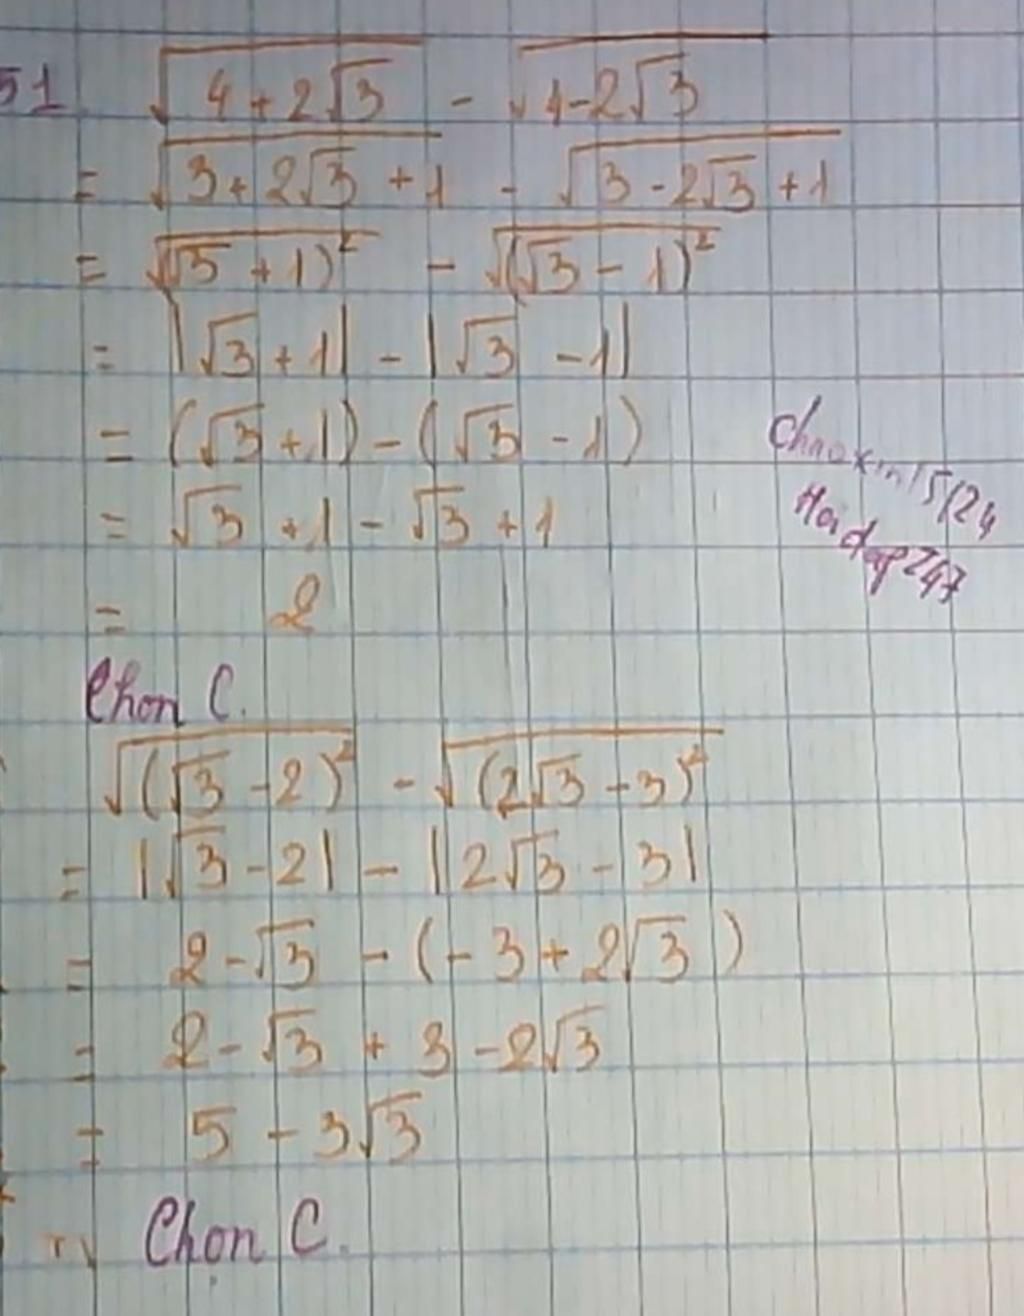 51. √(4+2√3) - √(4-2√3)
= √(3+2√3+1) - √(3-2√3+1)
= √(√3+1)² - √(√3-1)²
= |√3+1| - |√3-1|
= (√3+1) - (√3-1)
= √3+1-√3+1
= 2
Chaoxin15124
Hoidap247
Chọn C.
√(√3-2)² - √(2√3-3)²
= |√3-2| - |2√3-3|
= 2-√3 - (-3+2√3)
= 2-√3+3-2√3
= 5-3√3
Chọn C.